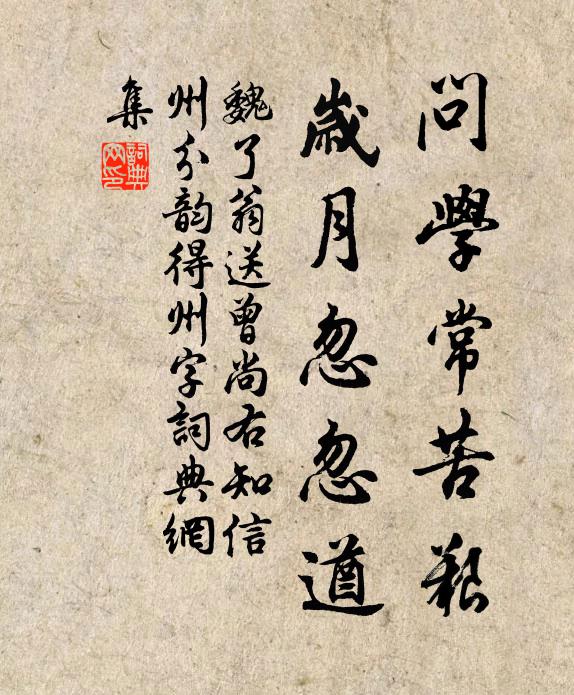 問學常苦艱
歲月忽忽遒
魏了翁送曾尚右知信
州分韵得州字詞典網
集
詞典網印